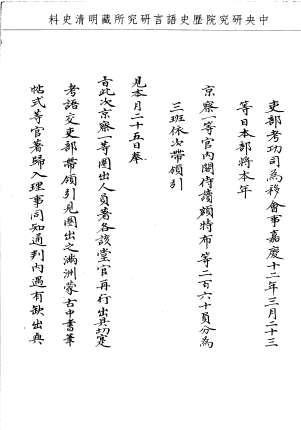 中央研究院歷史語言研究所藏明清史料
吏部考功司為移會事嘉慶十二年三月二十三
等日本部將本年
京察一等官內閣侍讀顏特布等二百六十員分為
三班依次帶領引
見本月二十五日奉
旨此次京察一等圈出人員著各該堂官再行出具切實
考語交吏部帶領引見圈出之滿洲蒙古中書筆
帖式等官著歸入理事同知通判內遇有缺出與